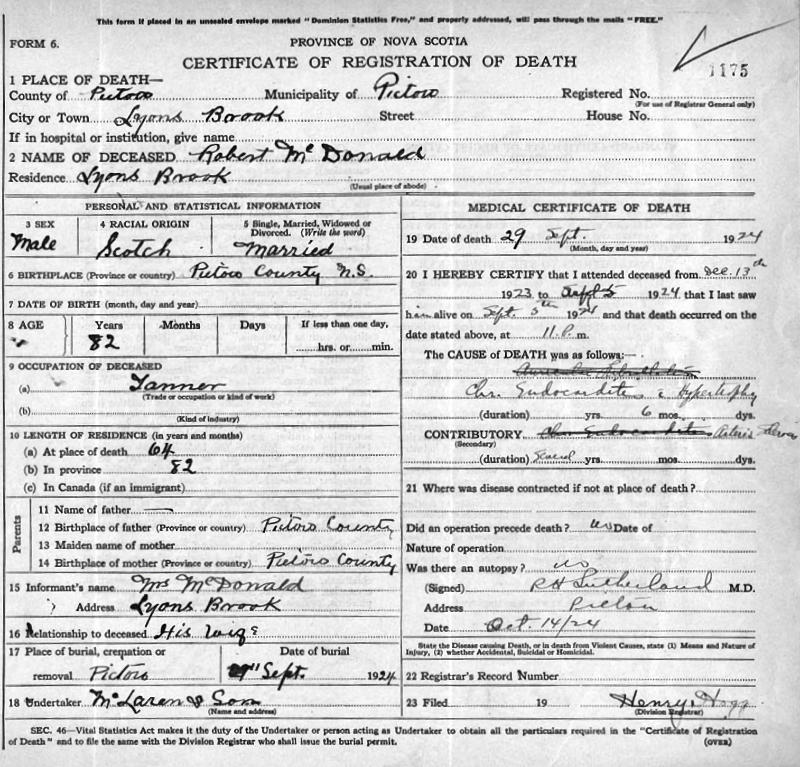 This form if placed in an unsealed envelope marked "Dominion Statistics Free," and properly addressed, will pass through the mails "FREE."
FORM 6.
PROVINCE OF NOVA SCOTIA
CERTIFICATE OF REGISTRATION OF DEATH
1175
1 PLACE OF DEATH—
County of Pictou Municipality of Pictou Registered No.
(For use of Registrar General only)
City or Town Lyons Brook Street House No.
If in hospital or institution, give name
2 NAME OF DECEASED Robert McDonald
Residence Lyons Brook
(Usual place of abode)
PERSONAL AND STATISTICAL INFORMATION
3 SEX 4 RACIAL ORIGIN 5 Single, Married, Widowed or Divorced. (Write the word)
Male Scotch Married
6 BIRTHPLACE (Province or country) Pictou County N.S.
7 DATE OF BIRTH (month, day and year)
8 AGE Years Months Days If less than one day,
82 hrs. or min.
9 OCCUPATION OF DECEASED
(a) Tanner
(Trade or occupation or kind of work)
(b)
(Kind of industry)
10 LENGTH OF RESIDENCE (in years and months)
(a) At place of death 64
(b) In province 82
(c) In Canada (if an immigrant)
Parents
11 Name of father —
12 Birthplace of father (Province or country) Pictou County
13 Maiden name of mother
14 Birthplace of mother (Province or country) Pictou County
15 Informant's name Mrs McDonald
Address Lyons Brook
16 Relationship to deceased His wife
17 Place of burial, cremation or removal Pictou
Date of burial Sept. 1924
18 Undertaker McLaren & Son
(Name and address)
MEDICAL CERTIFICATE OF DEATH
19 Date of death 29 Sept. 1924
(Month, day and year)
20 I HEREBY CERTIFY that I attended deceased from Dec. 13th
1923 to 1924 that I last saw
him alive on Sept. 5th 1924 and that death occurred on the
date stated above, at 11 P. m.
The CAUSE OF DEATH was as follows:—
Chr. Endocarditis & Hypertrophy
(duration) yrs. 6 mos. dys.
CONTRIBUTORY Chr. Endocarditis Arterio
(Secondary)
(duration) Several yrs. mos. dys.
21 Where was disease contracted if not at place of death?
Did an operation precede death? no Date of
Nature of operation
Was there an autopsy? no
(Signed) R H Sutherland M.D.
Address Pictou
Date Oct. 14/24
State the Disease causing Death, or in death from Violent Causes, state (1) Means and Nature of Injury, (2) whether Accidental, Suicidal or Homicidal.
22 Registrar's Record Number
23 Filed 19 Henry Hogg
(Division Registrar)
SEC. 46—Vital Statistics Act makes it the duty of the Undertaker or person acting as Undertaker to obtain all the particulars required in the "Certificate of Registration
of Death" and to file the same with the Division Registrar who shall issue the burial permit.
(OVER)